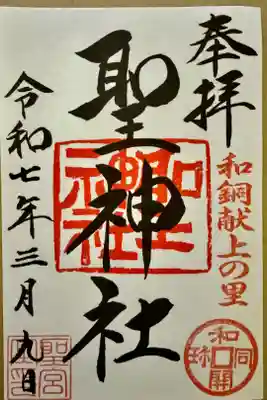 奉拝
和銅献上の里
聖神社
令和七年三月九日
聖神社
和同開珎
聖宮